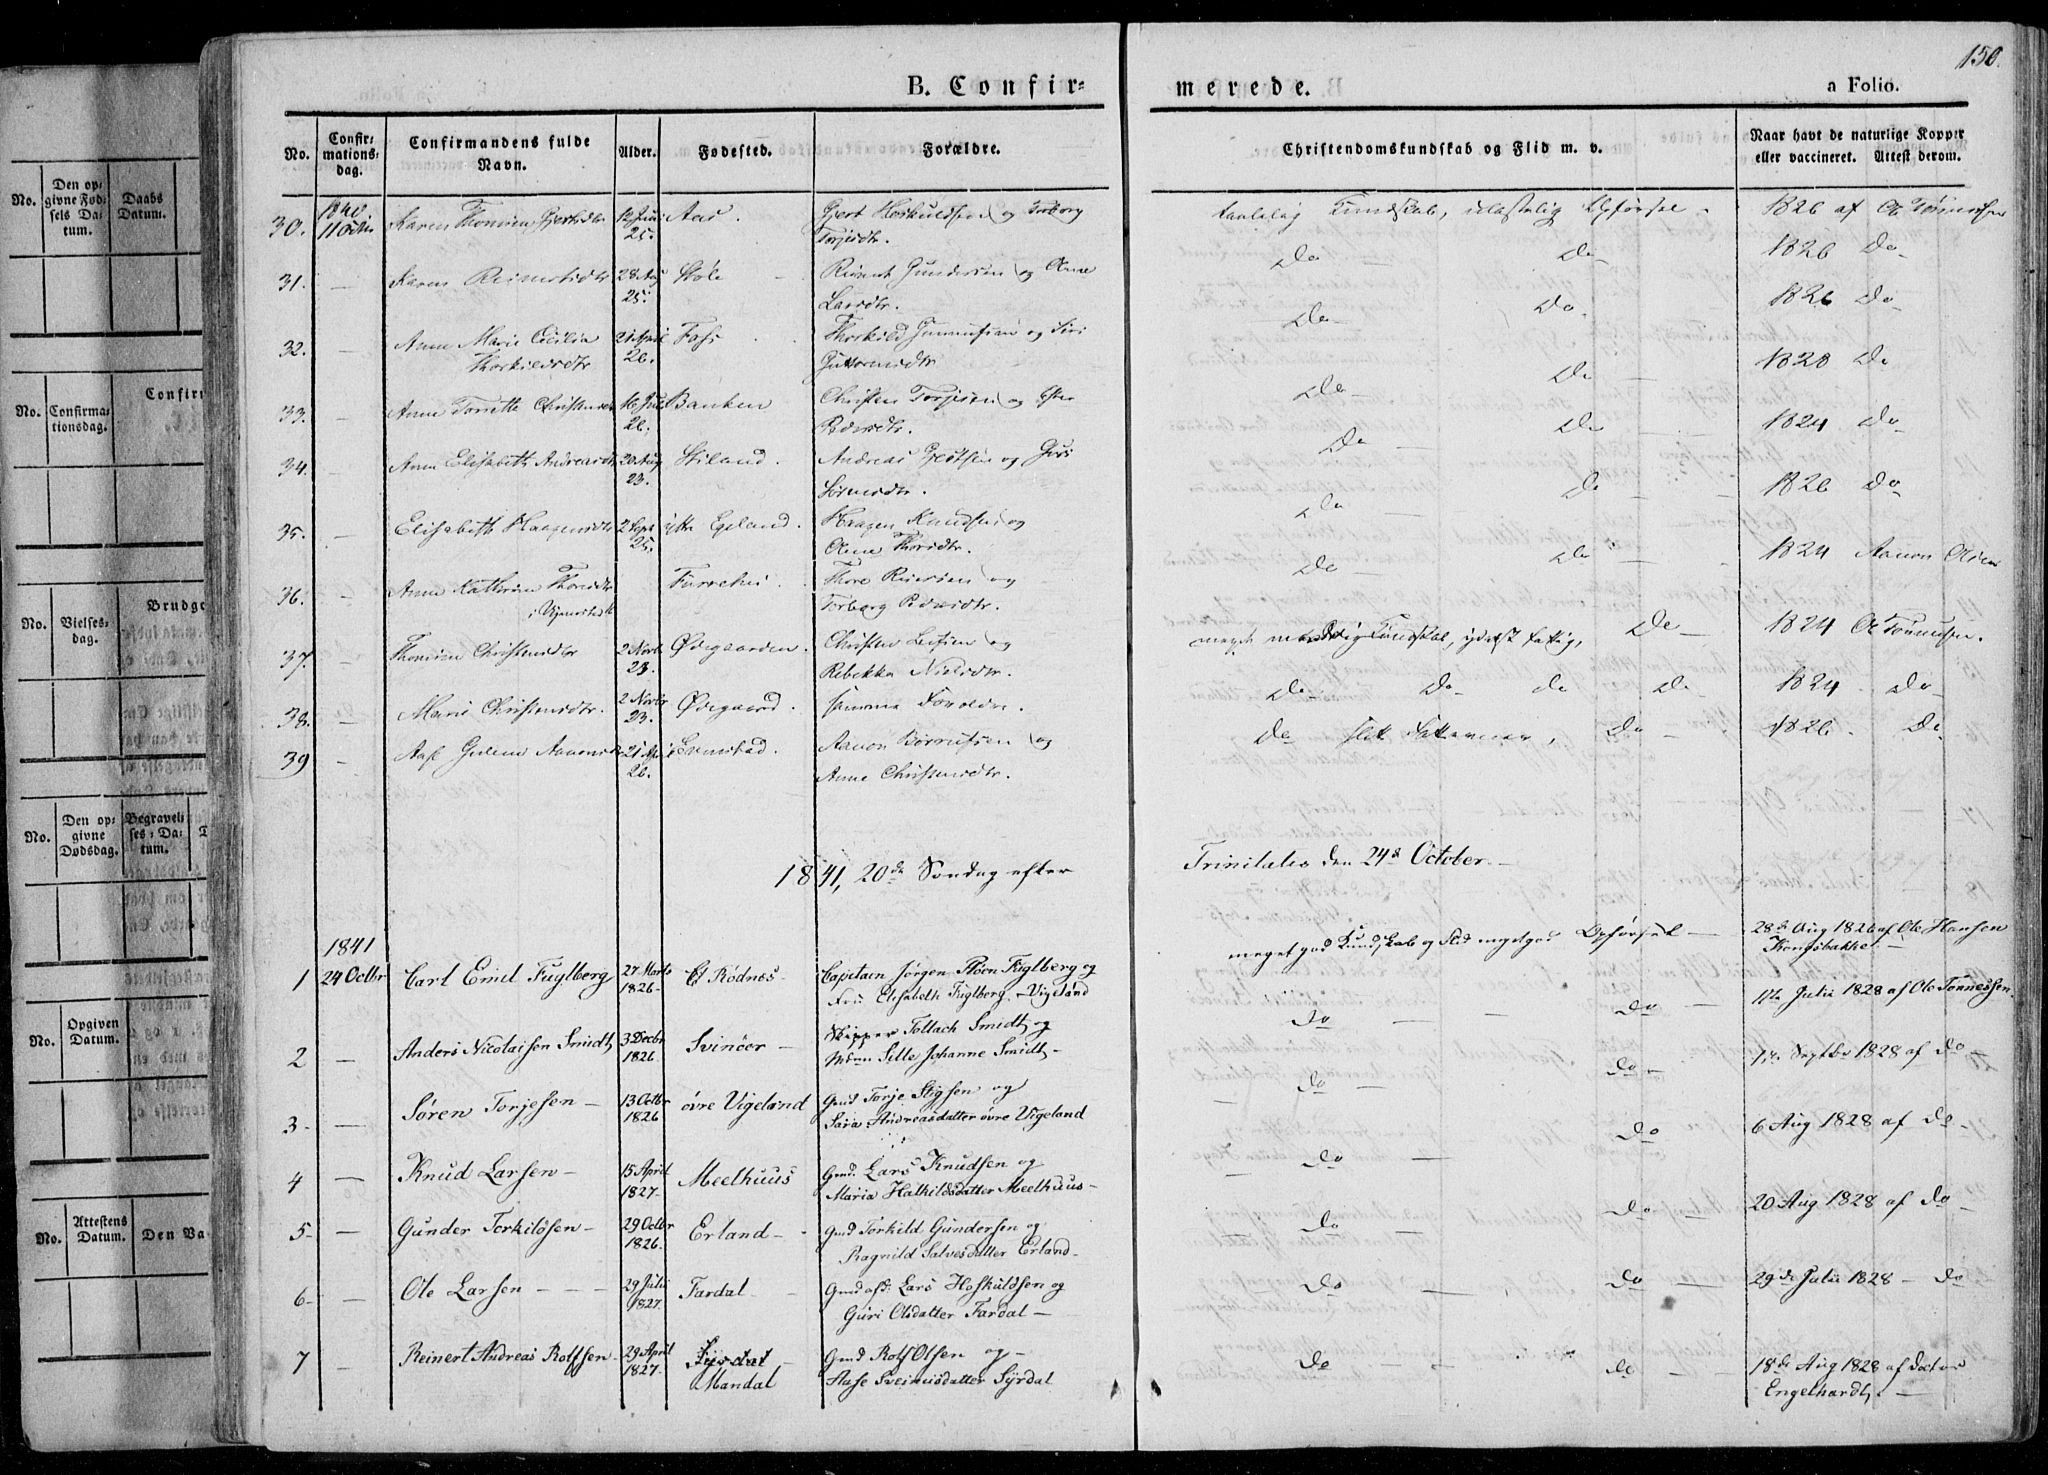 150.
B. Confir=
merede.
a Folio.
No.
Confir=
mations=
dag.
Confirmandens fulde
Navn.
Alder.
Fødested.
Forældre.
Christendomskundskab og Flid m. v.
Naar havt de naturlige Kopper
eller vaccineret. Attest derom.
30.
1840
11 Octbr
Karen Thomine Gjertsdtr
12 Juni
25.
Aas.
Gjert Hoskuldsen og Torborg
Torjesdtr.
Kundskab, ulastelig Opførsel -
1826 af Ol Tønnessen
31.
Karen Reinertsdtr
28 Aug
25.
Støle
Reinert Gundersen og Anne
Larsdtr.
Do Do
1826 Do
32.
Anne Marie Cecilia
Thorkildsdtr
21 April
26.
Foss
Thorkild Gunnufsen og Siri
Guttormsdtr
Do Do
1826 Do
33.
Anne Tonette Christensdr
16 Jul
26.
Banken
Christen Torjesen og Ester
Pedersdtr.
Do Do
1828 Do
34.
Anne Elisabeth Andreasdtr
20 Aug
23.
Stiland.
Andreas Gjertsen og Guri
Sørensdtr.
Do Do
1824 Do
35.
Elisabeth Haagensdtr
2 Sept
25.
ytre Egeland.
Haagen Knudsen og
Anne Thorsdtr.
Do Do
1826 Do
36.
Anne Kathrine Thorsdtr
i Vjemstad
Furrehei
Thore Reiersen og
Torborg Pedersdtr.
Do Do
1824 Aanon Olsen
37.
Thomine Christensdtr
2 Novbr
23.
Ødegaarden.
Christen Leifsen og
Rebekka Nielsdtr.
meget maadelig Kundskab, yderst fattig, Do
1824 Ol Tønnessen.
38.
Marie Christensdtr.
2 Novbr
23.
Ødegaard.
samme Forældre.
Do Do do Do
1824 Do
39
Aase Gulene Aanonsdtr
21 Apr
26.
Evenstad.
Aanon Børrufsen og
Anne Christensdtr.
Do slet Do
1826. Do
1841, 20de Søndag efter
Trinitatis den 24de October
1841
1
24 Octbr
Carl Emil Fuglberg
27 Marts
1826
Et Rødnes
Capitain Jørgen Thøen Fuglberg og
Frue Elisabeth Fuglberg. Vigeland
meget god Kundskab og Flid meget god Opførsel
28de Aug 1826 af Ole Hansen
Kongsbakke
2
Anders Nicolaisen Smidt,
3 Decbr
1826
Svinöer
Skipper Tollach Smidt og
Mdme Sille Johanne Smidt
Do do
17de Julii 1828 af Ole Tønnessen.
3
Søren Torjesen
13 Octbr
1826
øvre Vigeland
Gmd Torje Stigsen og
Sara Andreasdatter øvre Vigeland
do do
Septbr 1828 af do
4
Knud Larsen
15 April
1827.
Meelhuus
Gmd: Lars Knudsen og
Maria Halkildsdatter Meelhuus
Do Do
6 Aug 1828 af do
5
Gunder Torkildsen
29 Octbr
1826.
Erland
Gmd Torkild Gundersen og
Ragnild Salvesdatter Erland
Do Do
20 Aug 1828 af do
6
Ole Larsen
29 Julii
1827.
Fardal
Gmd afd: Lars Hoskuldsen og
Guri Olsdatter Fardal
do do
29de Julii 1828 do
7
Reinert Andreas Rolfsen
29 April
1827.
Syrdal
Mandal
Gmd Rolf Olsen og
Aase Sveinusdatter Syrdal
do do
18de Aug 1828 af Doctor
Engelhardt.
No.
Den op=
givne Fød=
sels Da=
tum.
Daabs
Datum.
No.
Confirma=
tionsdag.
Confirm
No.
Vielses=
dag.
Brudge
No.
Den op=
givne
Dødsdag.
Begravel=
ses=Da=
tum.
No.
Opgiven
Datum.
No.
Attestens
Datum.
Den Va